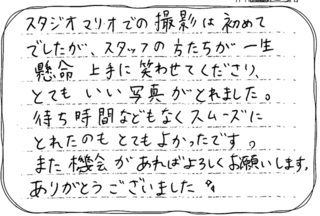 スタジオマリオでの撮影は初めて
でしたが、スタッフの方たちが一生
懸命上手に笑わせてくださり、
とてもいい写真がとれました。
待ち時間などもなくスムーズに
とれたのもとてもよかったです。
また機会があればよろしくお願いします。
ありがとうございました